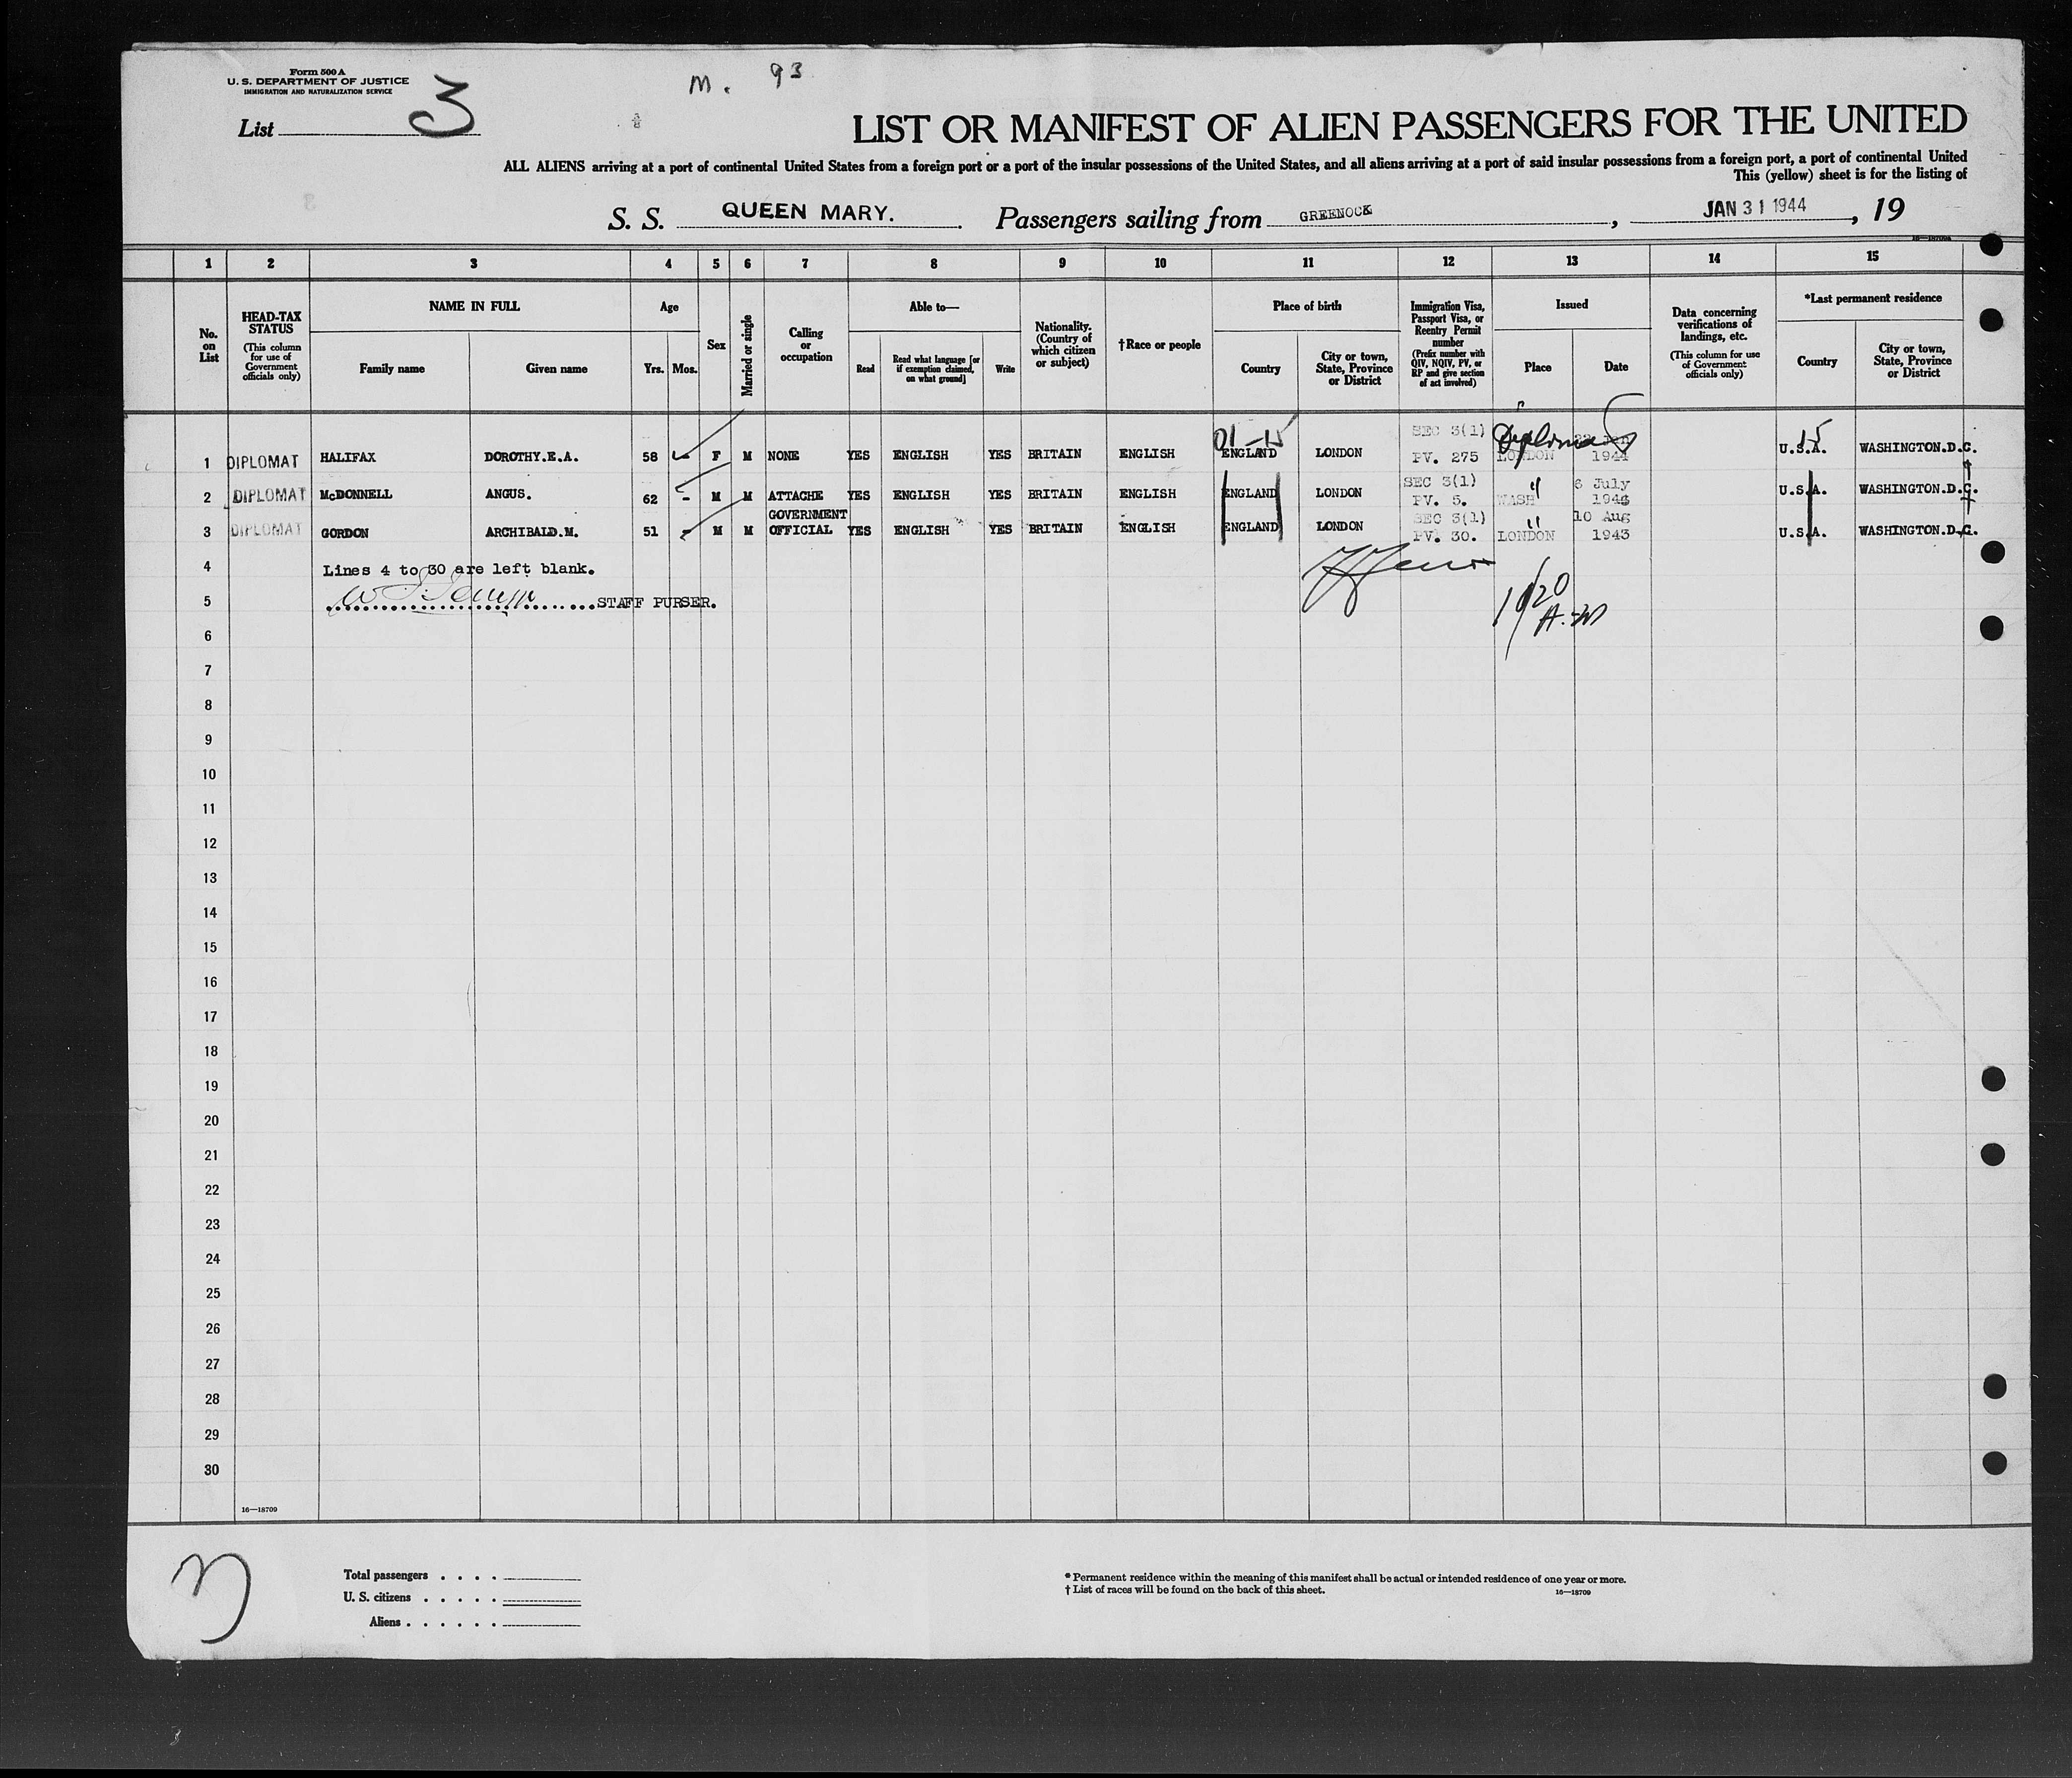 Form 500 A
U. S. DEPARTMENT OF JUSTICE
IMMIGRATION AND NATURALIZATION SERVICE
M. 93
List 3
LIST OR MANIFEST OF ALIEN PASSENGERS FOR THE UNITED
ALL ALIENS arriving at a port of continental United States from a foreign port or a port of the insular possessions of the United States, and all aliens arriving at a port of said insular possessions from a foreign port, a port of continental United
This (yellow) sheet is for the listing of
S. S. QUEEN MARY. Passengers sailing from GREENOCK, JAN 31 1944, 19
1 2 3 4 5 6 7 8 9 10 11 12 13 14 15
No. on List
HEAD-TAX STATUS (This column for use of Government officials only)
NAME IN FULL
Family name
Given name
Age
Yrs. Mos.
Sex
Married or single
Calling or occupation
Able to—
Read
Read what language [or if exemption claimed, on what ground]
Write
Nationality. (Country of which citizen or subject)
†Race or people
Place of birth
Country
City or town, State, Province or District
Immigration Visa, Passport Visa, or Reentry Permit number (Prefix number with QIV, NQIV, PV, or RP and give section of act involved)
Issued
Place
Date
Data concerning verifications of landings, etc. (This column for use of Government officials only)
*Last permanent residence
Country
City or town, State, Province or District
1 DIPLOMAT HALIFAX DOROTHY.E.A. 58 - F M NONE YES ENGLISH YES BRITAIN ENGLISH 01-15 ENGLAND LONDON SEC 3(1) PV. 275 Diplomat LONDON 1944 15 U.S.A. WASHINGTON.D.C.
2 DIPLOMAT McDONNELL ANGUS. 62 - M M ATTACHE YES ENGLISH YES BRITAIN ENGLISH ENGLAND LONDON SEC 3(1) PV. 5. " WASH 6 July U.S.A. WASHINGTON.D.C.
3 DIPLOMAT GORDON ARCHIBALD.M. 51 - M M GOVERNMENT OFFICIAL YES ENGLISH YES BRITAIN ENGLISH ENGLAND LONDON SEC 3(1) PV. 30. " LONDON 10 Aug 1943 U.S.A. WASHINGTON.D.C.
4 Lines 4 to 30 are left blank.
5 STAFF PURSER.
6
7
8
9
10
11
12
13
14
15
16
17
18
19
20
21
22
23
24
25
26
27
28
29
30
16—18709
3
Total passengers . . . .
U. S. citizens . . . . .
Aliens . . . . . .
* Permanent residence within the meaning of this manifest shall be actual or intended residence of one year or more.
† List of races will be found on the back of this sheet.
16—18709